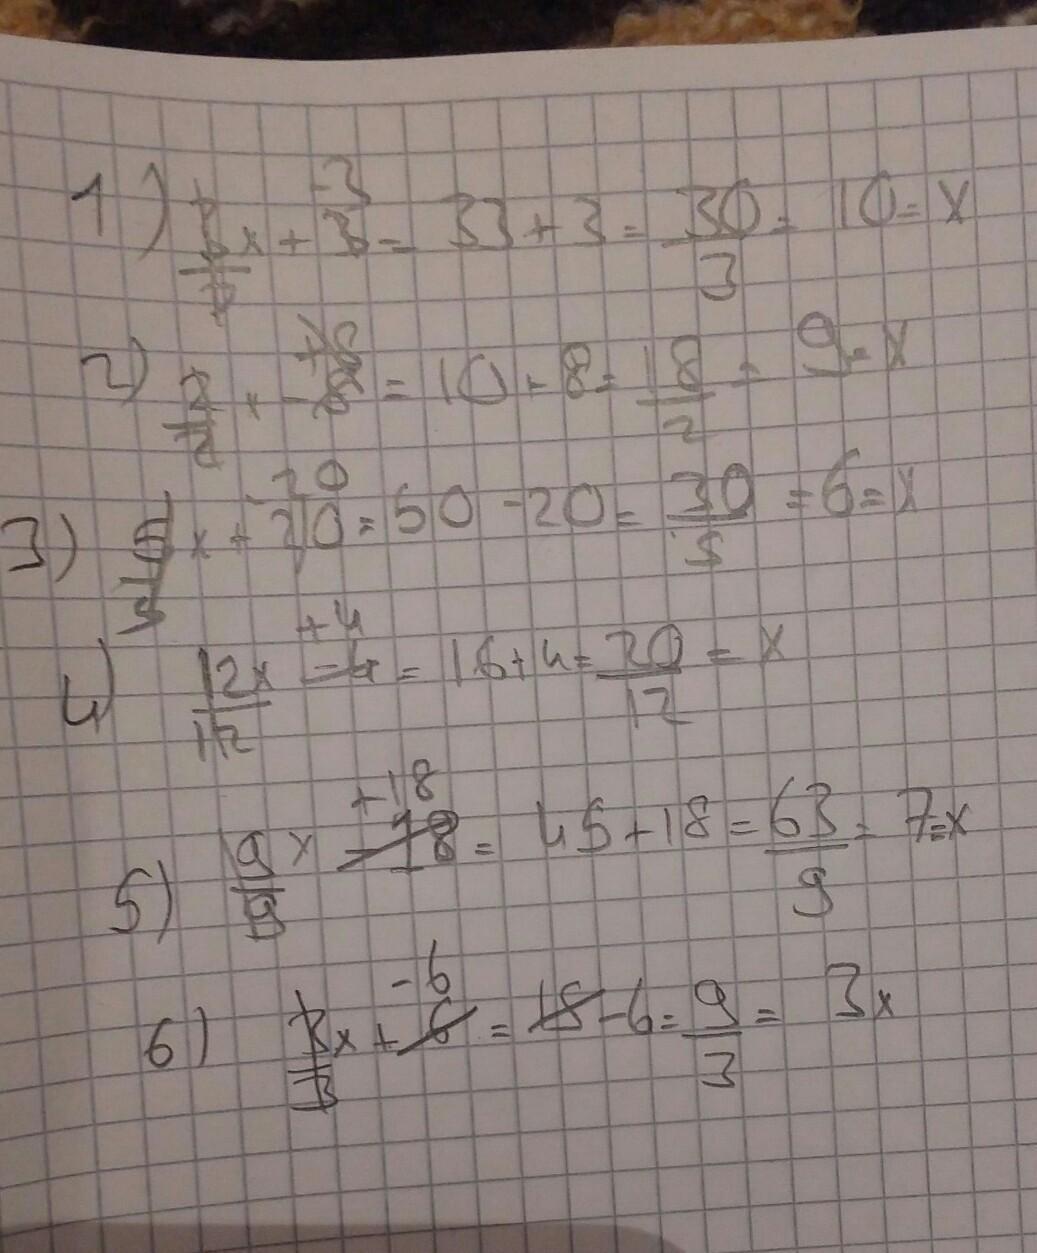 1) 3/3 x + 3 -3 = 33 + 3 = 30/3 = 10 = x
2) 2/2 x - 8 +8 = 10 + 8 = 18/2 = 9 = x
3) 5/5 x + 20 -20 = 50 - 20 = 30/5 = 6 = x
4) 12x/12 - 4 +4 = 16 + 4 = 20/12 = x
5) 9/9 x - 18 +18 = 45 + 18 = 63/9 = 7 = x
6) 3/3 x + 6 -6 = 15 - 6 = 9/3 = 3x